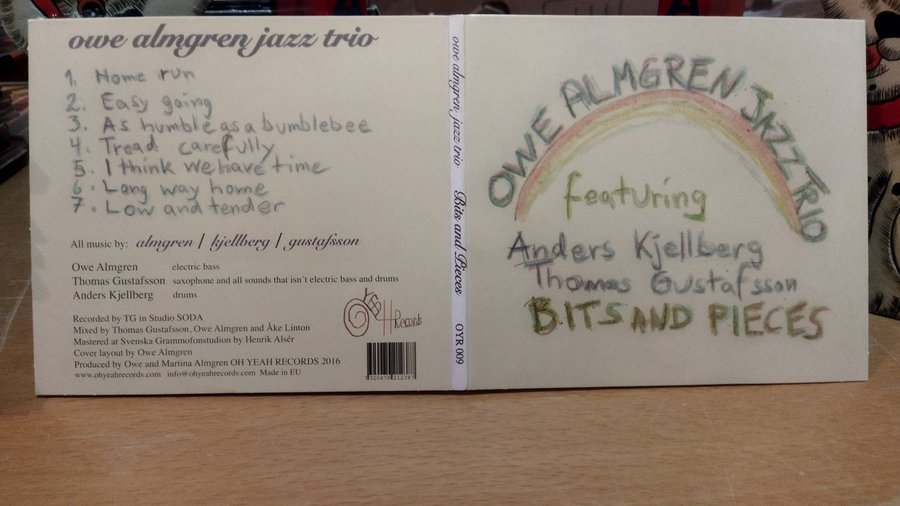 owe almgren jazz trio
1. Home run
2. Easy going
3. As humble as a bumblebee
4. Tread carefully
5. I think we have time
6. Long way home
7. Low and tender
All music by: almgren / kjellberg / gustafsson
Owe Almgren electric bass
Thomas Gustafsson saxophone and all sounds that isn´t electric bass and drums
Anders Kjellberg drums
Recorded by TG in Studio SODA
Mixed by Thomas Gustafsson, Owe Almgren and Åke Linton
Mastered at Svenska Grammofonstudion by Henrik Alsér
Cover layout by Owe Almgren
Produced by Owe and Martina Almgren OH YEAH RECORDS 2016
www.ohyeahrecords.com info@ohyeahrecords.com Made in EU
Records
7320470212387
owe almgren jazz trio Bits and Pieces OYR 009
OWE ALMGREN JAZZ TRIO
featuring
Anders Kjellberg
Thomas Gustafsson
BITS AND PIECES